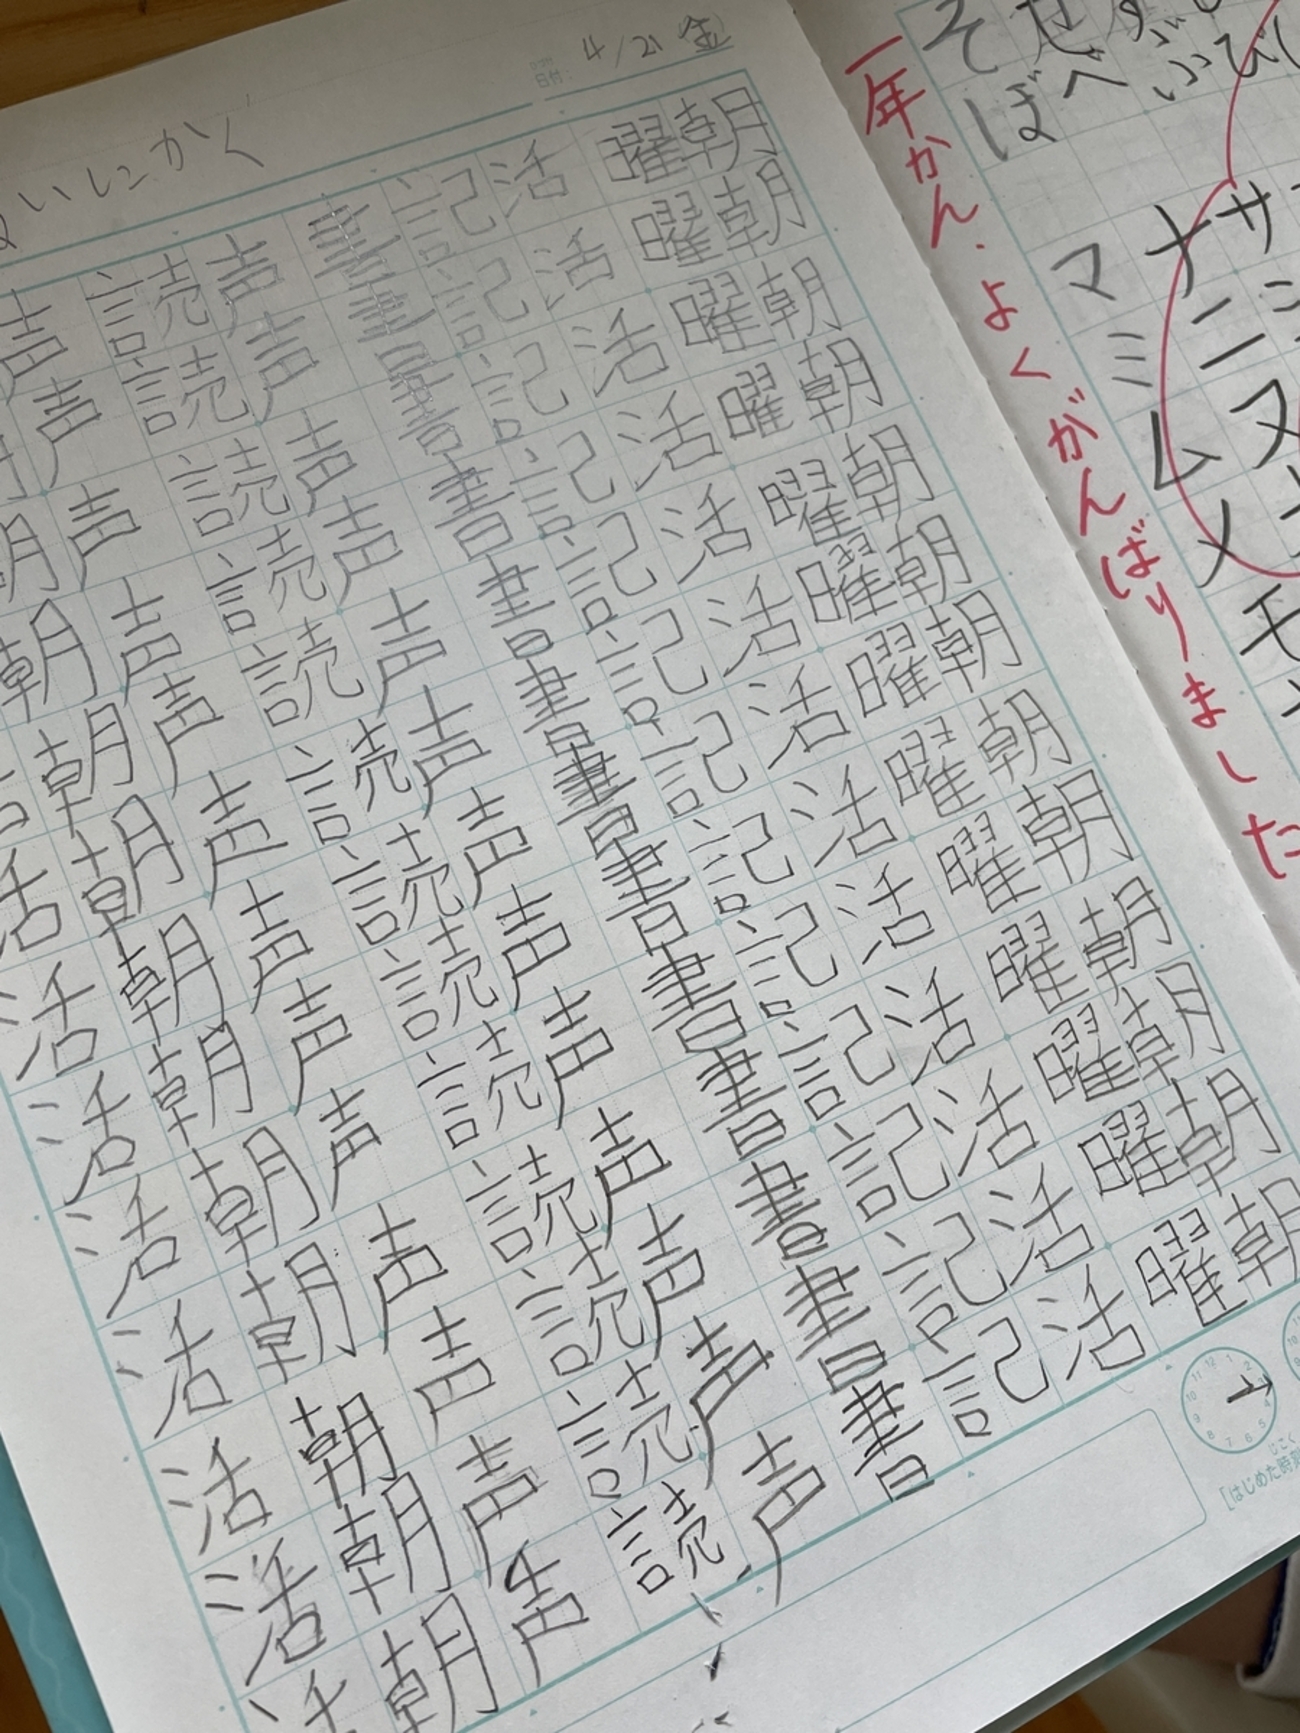 4/21 金
いにかく
朝朝朝朝朝朝朝朝朝朝朝朝朝
曜曜曜曜曜曜曜曜曜曜曜曜曜
活活活活活活活活活活活活活
記記記記記記記記記記記記記
書書書書書書書書書書書書書
声声声声声声声声声声声声声
読読読読読読読読読読読読読
声声声声声声声声声声声声声
朝朝朝朝朝朝朝朝朝朝朝
活活活活活活活活
[はじめた時刻
サ
ナニヌ
マミムメモ
せべ
そぼ
一年かん、よくがんばりました